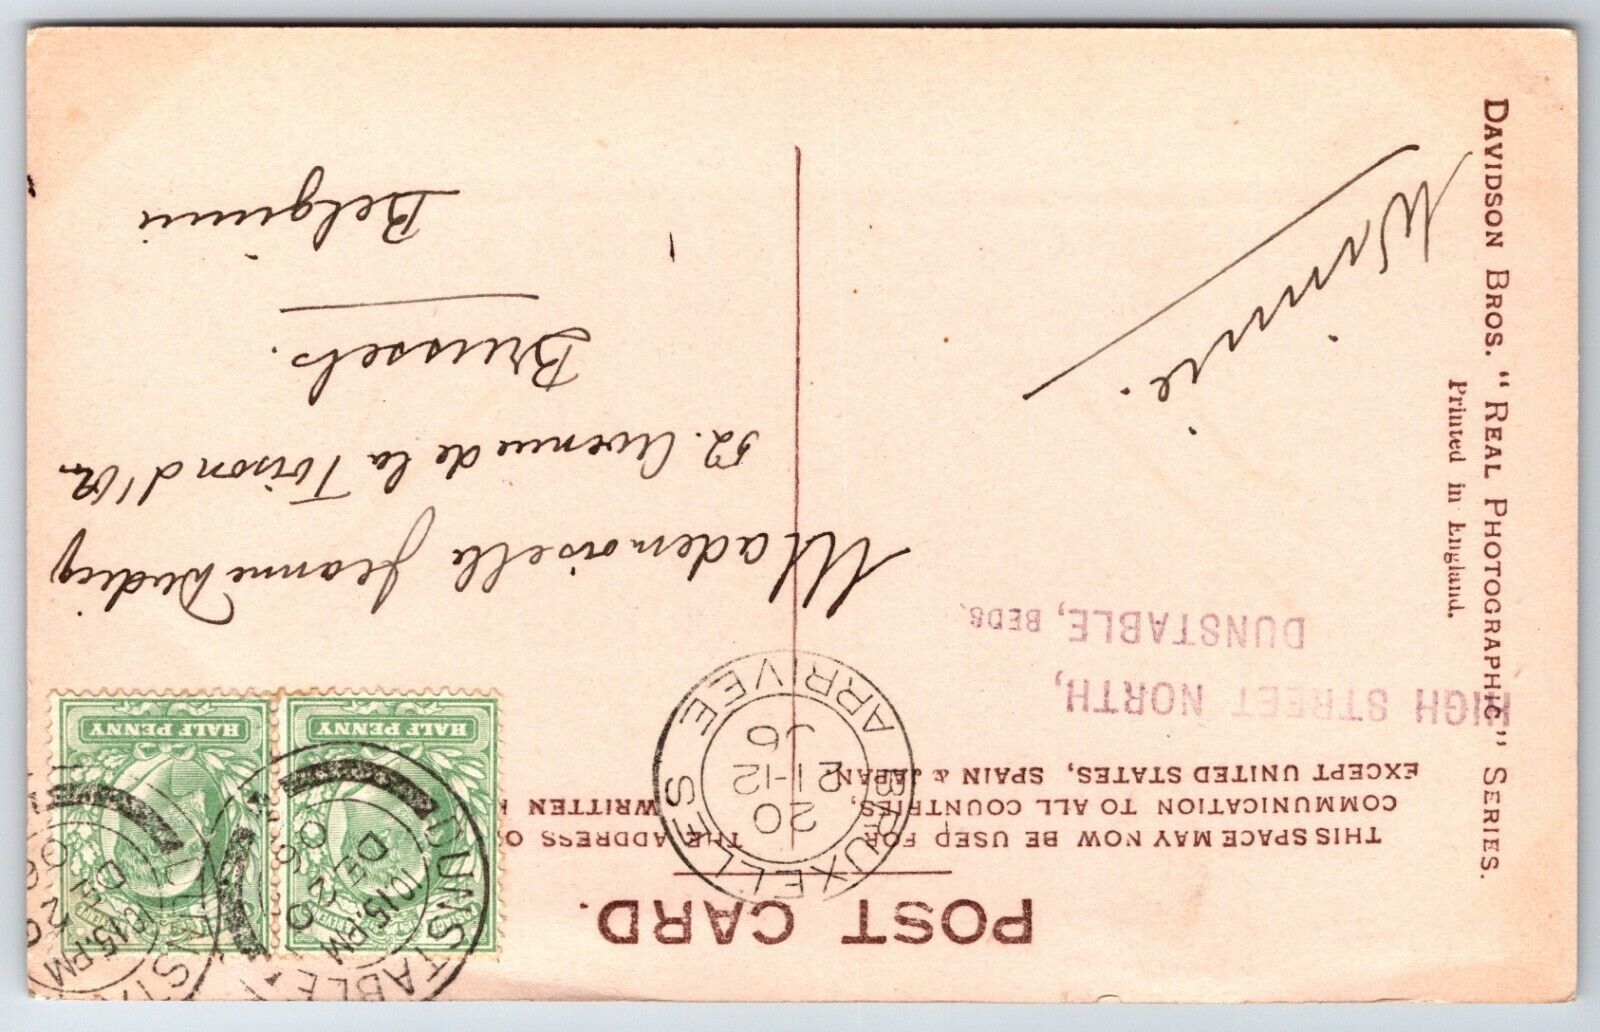 POST CARD.
THIS SPACE MAY NOW BE USED FOR
COMMUNICATION TO ALL COUNTRIES,
EXCEPT UNITED STATES, SPAIN & JAPAN.
THE ADDRESS O
WRITTEN
HIGH STREET NORTH,
DUNSTABLE, BEDS.
Winnie.
Mademoiselle Jeanne
52. Avenue de la Toison d'Or
Brussels.
Belgium
BRUXELLES
20
21-12
06
ARRIVEE
DUNSTABLE
10.15.PM
DE 20
06
8.15.PM
DE 20
06
HALF PENNY
HALF PENNY
DAVIDSON BROS. "REAL PHOTOGRAPHIC" SERIES.
Printed in England.